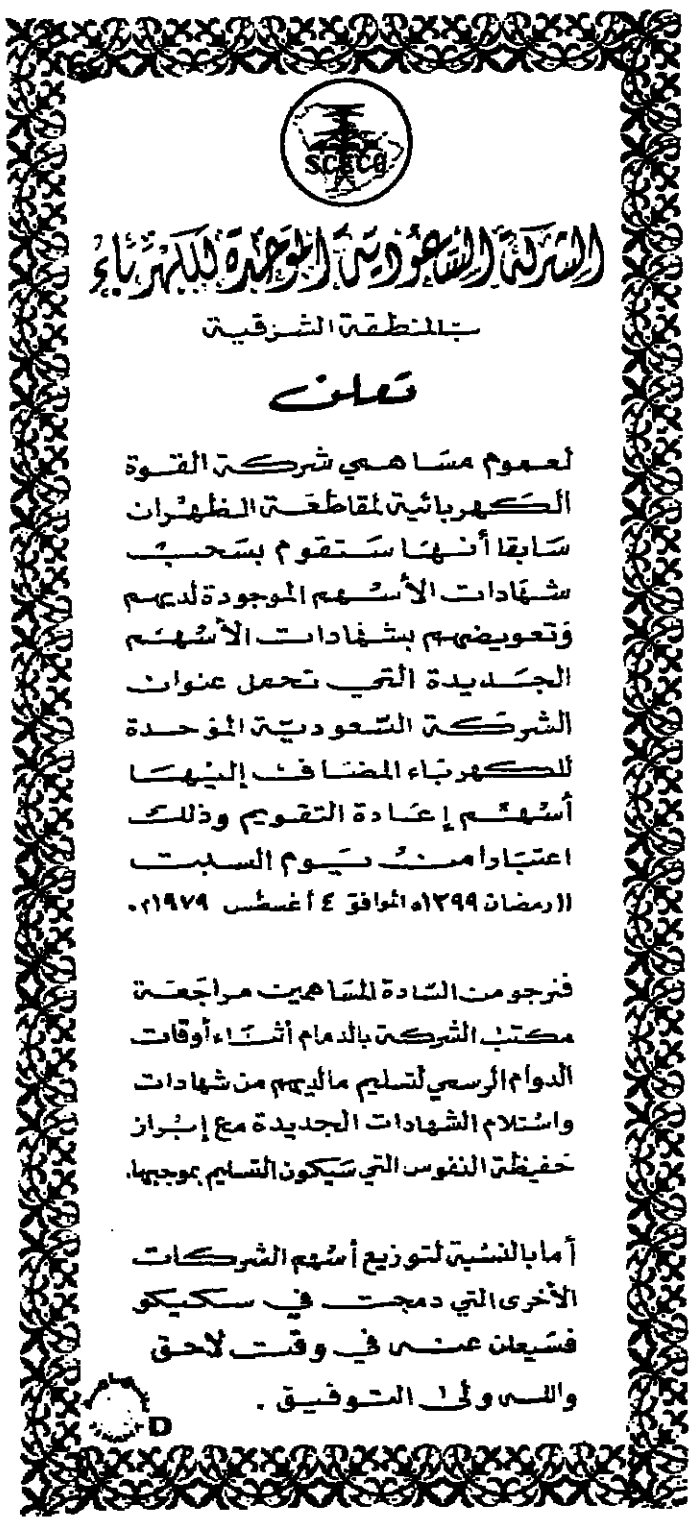 sceco
الشركة السعودية الموحدة للكهرباء
بالمنطقة الشرقية
تعلن
لعموم مساهمي شركة القوة
الكهربائية لمقاطعة الظهران
سابقا أنها ستقوم بسحب
شهادات الأسهم الموجودة لديهم
وتعويضهم بشهادات الأسهم
الجديدة التي تحمل عنوان
الشركة السعودية الموحدة
للكهرباء المضاف إليها
أسهم إعادة التقويم وذلك
اعتبارا من يوم السبت
١١ رمضان ١٣٩٩ه الموافق ٤ أغسطس ١٩٧٩م.
فنرجو من السادة المساهمين مراجعة
مكتب الشركة بالدمام أثناء أوقات
الدوام الرسمي لتسليم مالديهم من شهادات
واستلام الشهادات الجديدة مع إبراز
حفيظة النفوس التي سيكون التسليم بموجبها.
أما بالنسبة لتوزيع أسهم الشركات
الأخرى التي دمجت في سكيكو
فسيعلن عنه في وقت لاحق
والله ولي التوفيق .
D